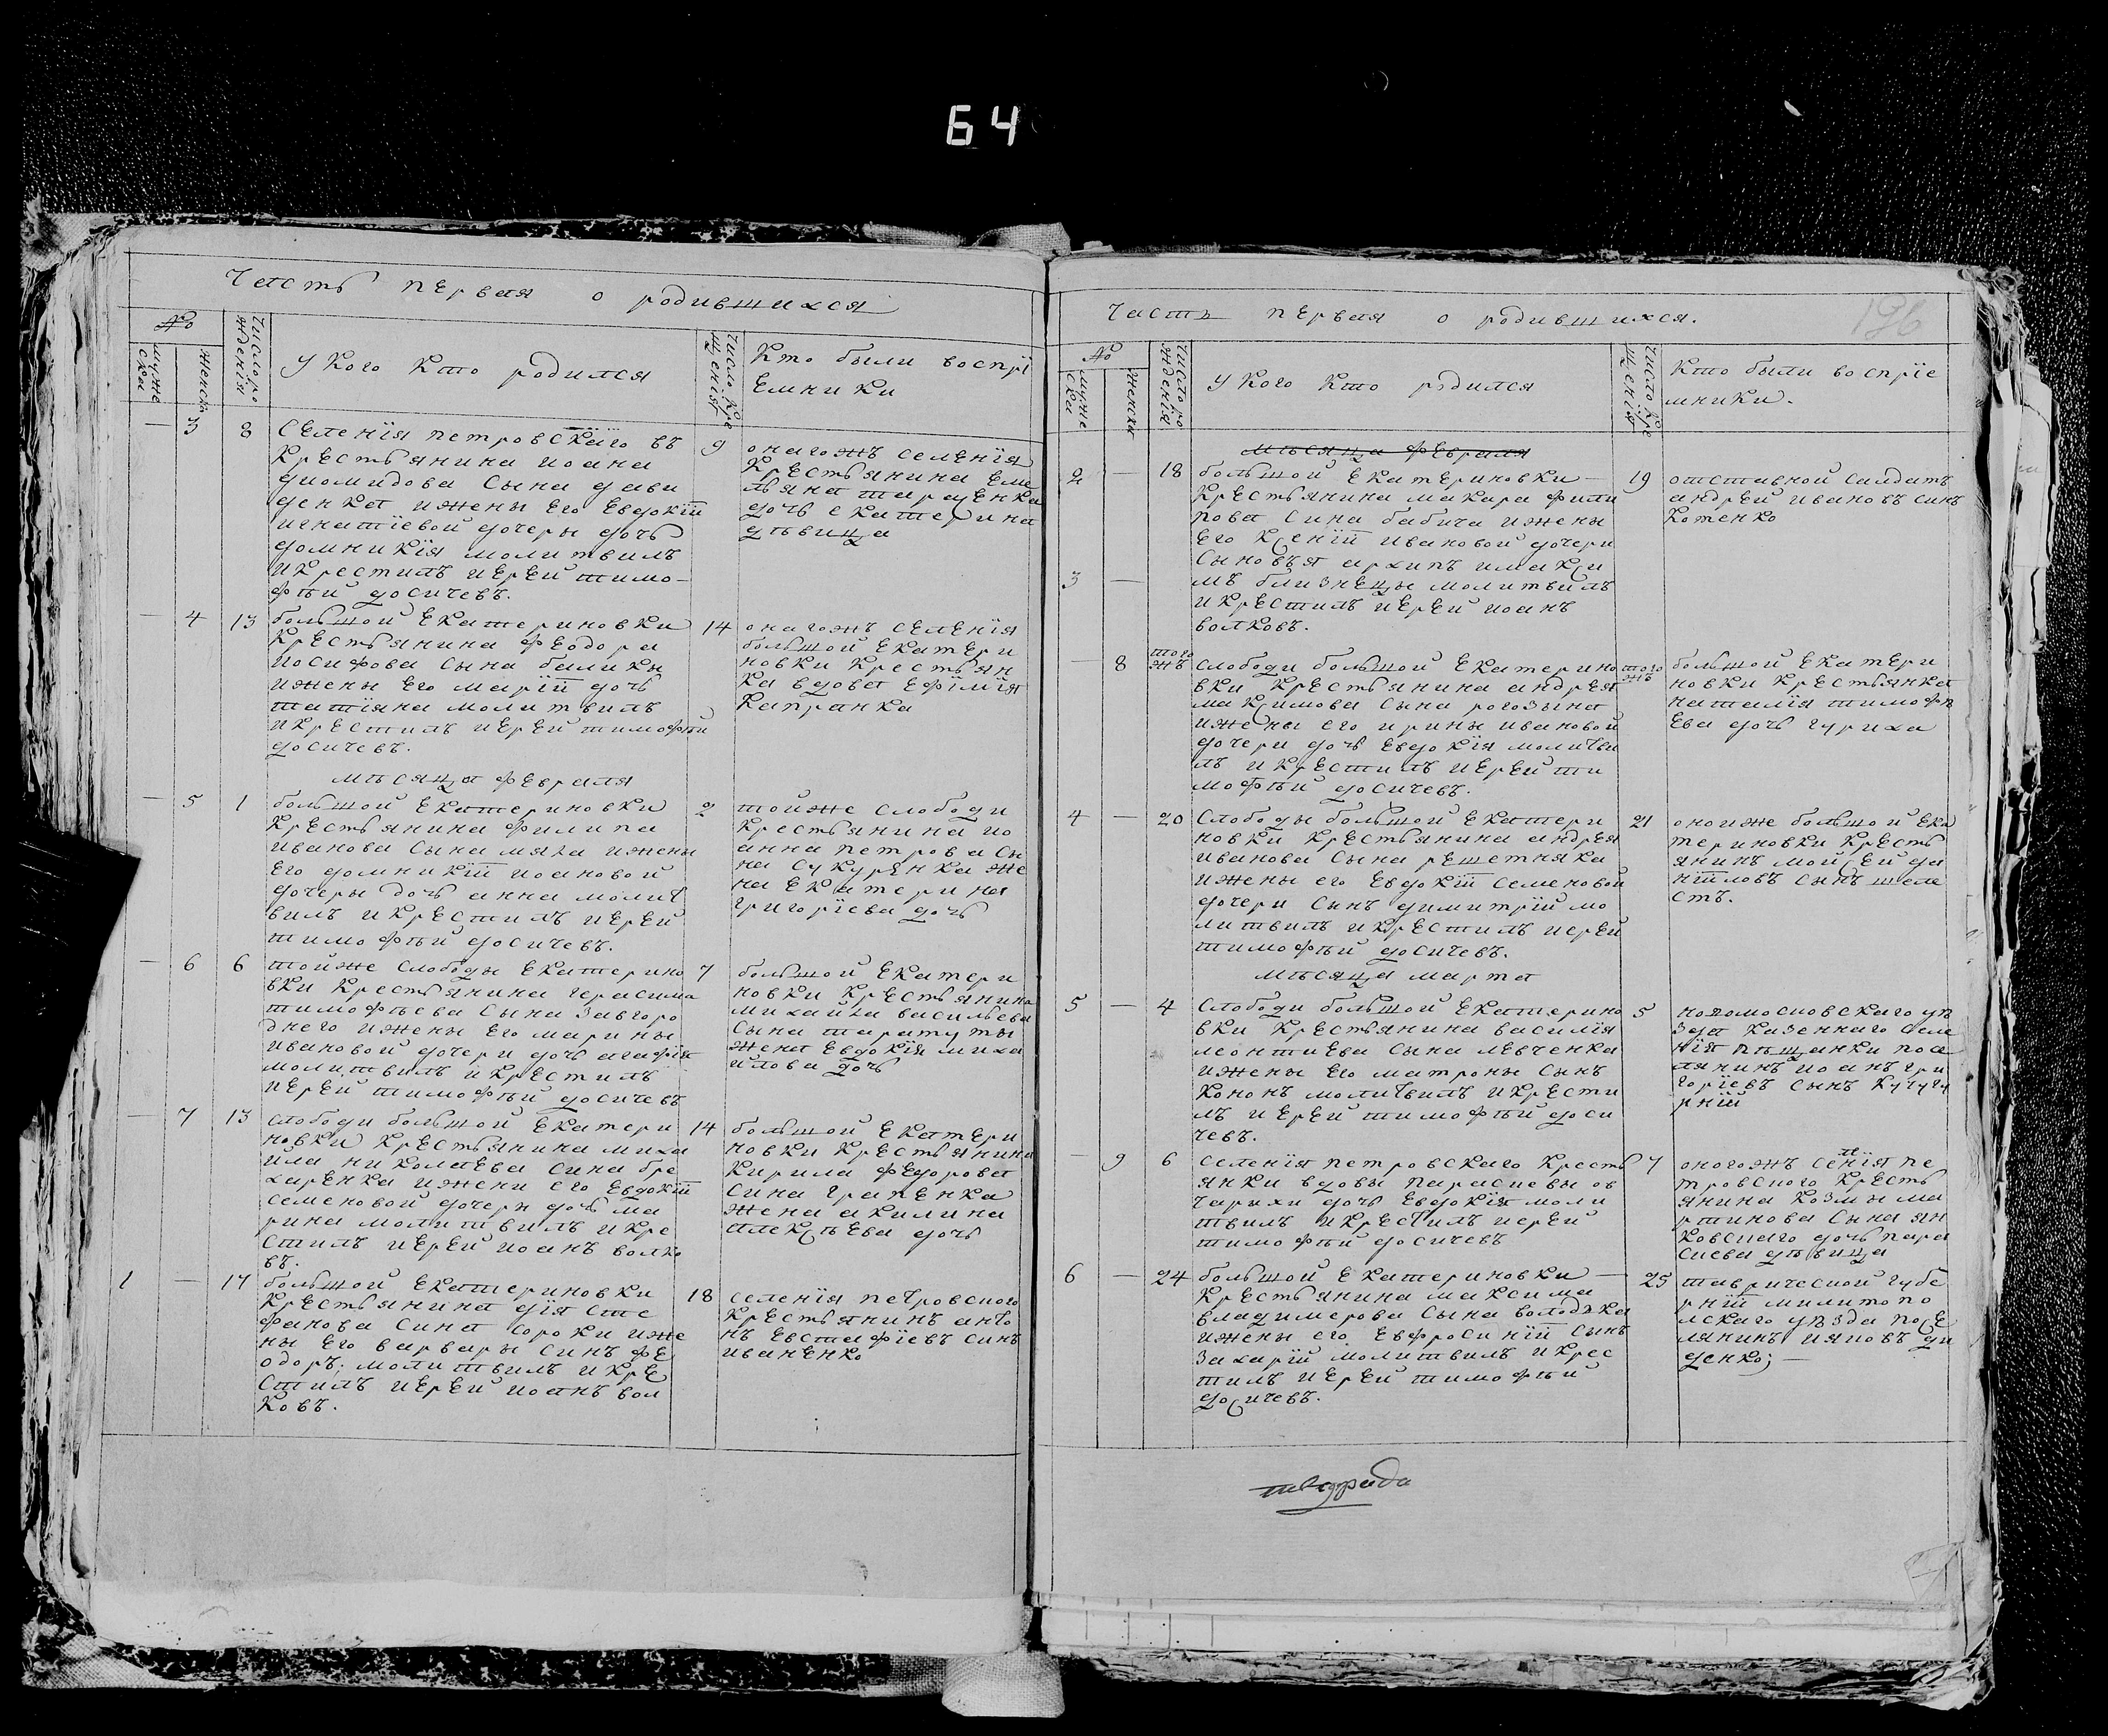 64
Часть первая о родившихся
№
мужеска
женска
число рождения
У кого кто родился
число крещения
Кто были воспрї
емники
— 3 8
Селенїя петровскаго въ
крестьянина иоана
диомидова сына дави
денка и жены его евдокїи
игнатїевой дочеры дочь
домникїя молитвилъ
и крестилъ иерей тимо-
фѣй досичевъ.
9
оногожъ селенїя
крестьянина еме
льяна таращенка
дочь екатерина
дѣвица
— 4 13
большой екатериновки
крестьянина феодора
иосифова сына балики
и жены его марїи дочь
татїяна молитвилъ
и крестилъ иерей тимофѣй
досичевъ.
14
оногожъ селенїя
большой екатери
новки крестьян
ка вдова ефїмїя
капранка
мѣсяца февраля
— 5 1
большой екатериновки
крестьянина филипа
иванова сына ляха и жены
его домникїи иоановой
дочеры дочь анна молит
вилъ и крестилъ иерей
тимофѣй досичевъ.
2
тойже слободи
крестьянина ио
анна петрова сы
на сукуренка же
на екатерина
григорїева дочь
— 6 6
тойже слободы екатерино
вки крестьянина герасима
тимофѣева сына завгоро
днего и жены его марины
ивановой дочери дочь агафїя
молитвилъ и крестилъ
иерей тимофѣй досичевъ
7
большой екатери
новки крестьянина
михайла васильева
сына таратуты
жена евдокїя миха
йлова дочь
— 7 13
слободи большой екатери
новки крестьянина миха
йла николаева сина бре
харенка и жени его евдокїи
семеновой дочери дочь ма
рина молитвилъ и кре
стилъ иерей иоанъ волко
въ.
14
большой екатери
новки крестьянина
кирила федорова
сина грапенка
жена акилина
алексѣева дочь
1 — 17
большой екатериновки
крестьянина дїя сте
фанова сина сороки и же
ны его варвары синъ фе
одоръ; молитвилъ и кре
стилъ иерей иоанъ вол
ковъ.
18
селенїя петровского
крестьянинъ анто
нъ евстафїевъ синъ
иваненко
196
Часть первая о родившихся.
№
мужеска
женска
число рождения
У кого кто родился
число крещения
Кто были воспрїе
мники.
мѣсяца февраля
2 — 18
большой екатериновки —
крестьянина макара фили
пова сина бабича и жены
его ксенїи ивановой дочери
сыновья архипъ и макси
3 —
мъ близнецы молитвилъ
и крестилъ иерей иоанъ
волковъ.
19
отставной салдатъ
андрей ивановъ синъ
котенко
— 8 того жъ
слободи большой екатерино
вки крестьянина андрея
максимова сына рогозына
и жены его ирины ивановой
дочери дочь евдокїя молитви
лъ и крестилъ иерей ти
мофѣй досичевъ.
того жъ
большой екатери
новки крестьянка
наталїя тимофѣ
ева дочь гуриха
4 — 20
Слободы большой екатери
новки крестьянина андрея
иванова сына решетняка
и жены его евдокїи семеновой
дочери сынъ димитрїй мо
литвилъ и крестилъ иерей
тимофѣй досичевъ.
21
оноиже большой ека
териновки кресть
янинъ мойсей да
нїиловъ сынъ шеле
стъ.
мѣсяца марта
5 — 4
Слободи большой екатерино
вки крестьянина василїя
леонтиева сына левченка
и жены его матроны сынъ
кононъ молитвилъ и крести
лъ иерей тимофѣй доси
чевъ.
5
новомосковскаго уѣ
зда казенного селе
нїя пѣщанки посе
лянинъ иоанъ гри
горїевъ сынъ кучугу
рнїй
— 9 6
селенїя петровскаго кресть
янки вдовы параскевы ов
чарихи дочь евдокїя моли
твилъ и крестилъ иерей
тимофѣй досичевъ
7
оногожъ селенїя пе
тровского кресть
янина козмы ма
ртинова сына ян
ковскаго дочь пара
скева дѣвица
6 — 24
большой екатериновки —
крестьянина максима
владимерова сына володка
и жены его евфросинїи сынъ
захарїй молитвилъ и крес
тилъ иерей тимофѣй
досичевъ.
25
таврической губе
рнїи милитопо
лского уѣзда посе
лянинъ иаковъ ди
денко; —